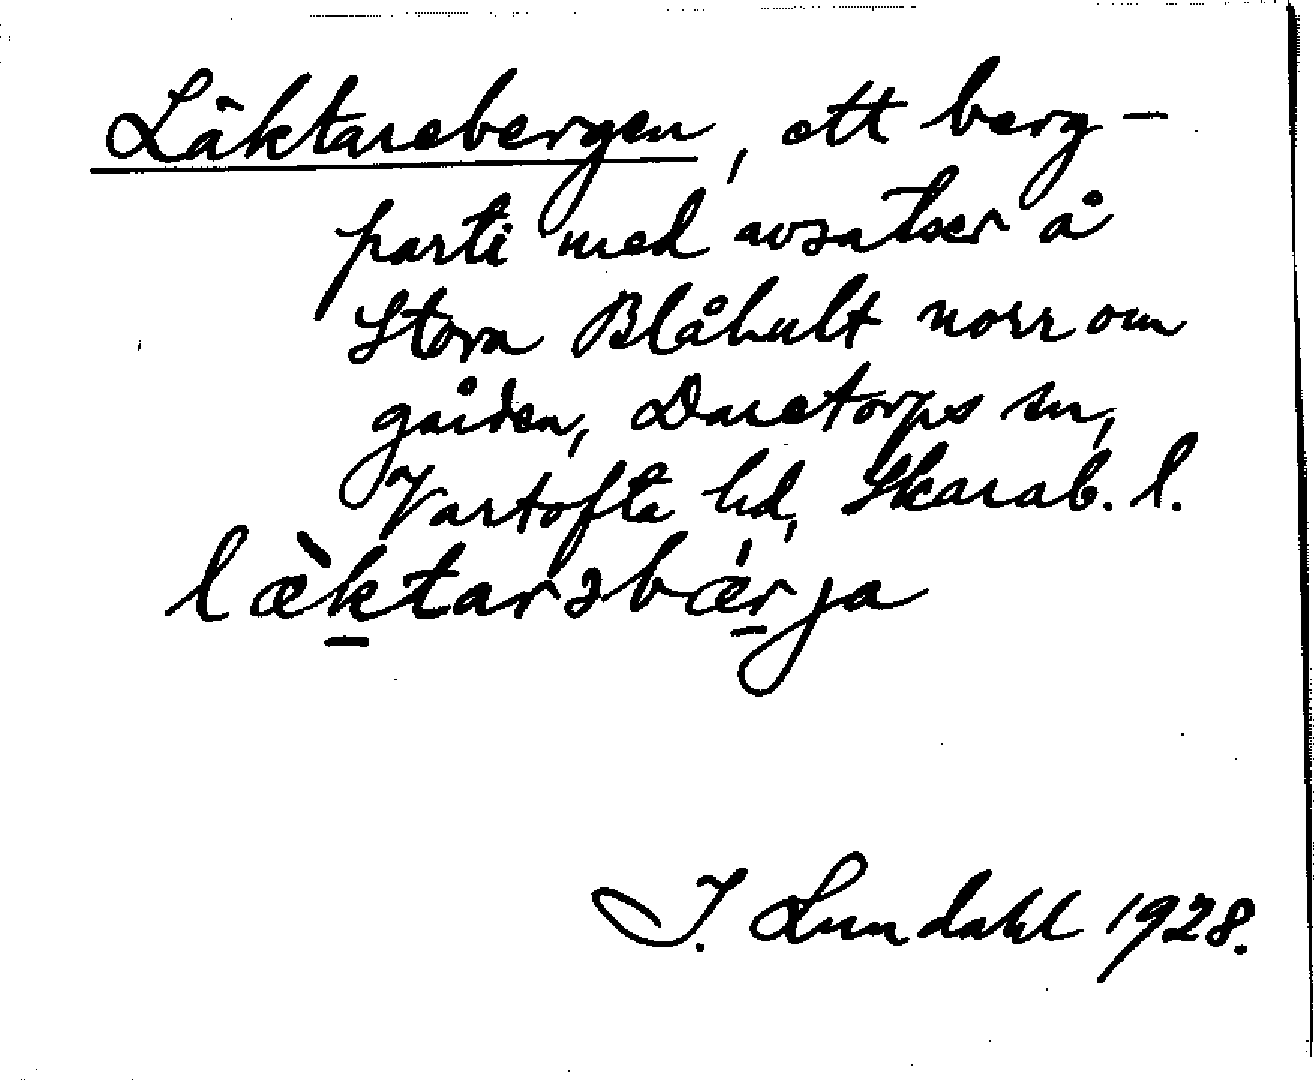 Läktarebergen, ett berg-
parti med avsatser å
Stora Blåhult norr om
gården, Daretorps sn,
Vartofta hd, Skarab. l.
læ̀ktarəbæ̣rja
I. Lundahl 1928.